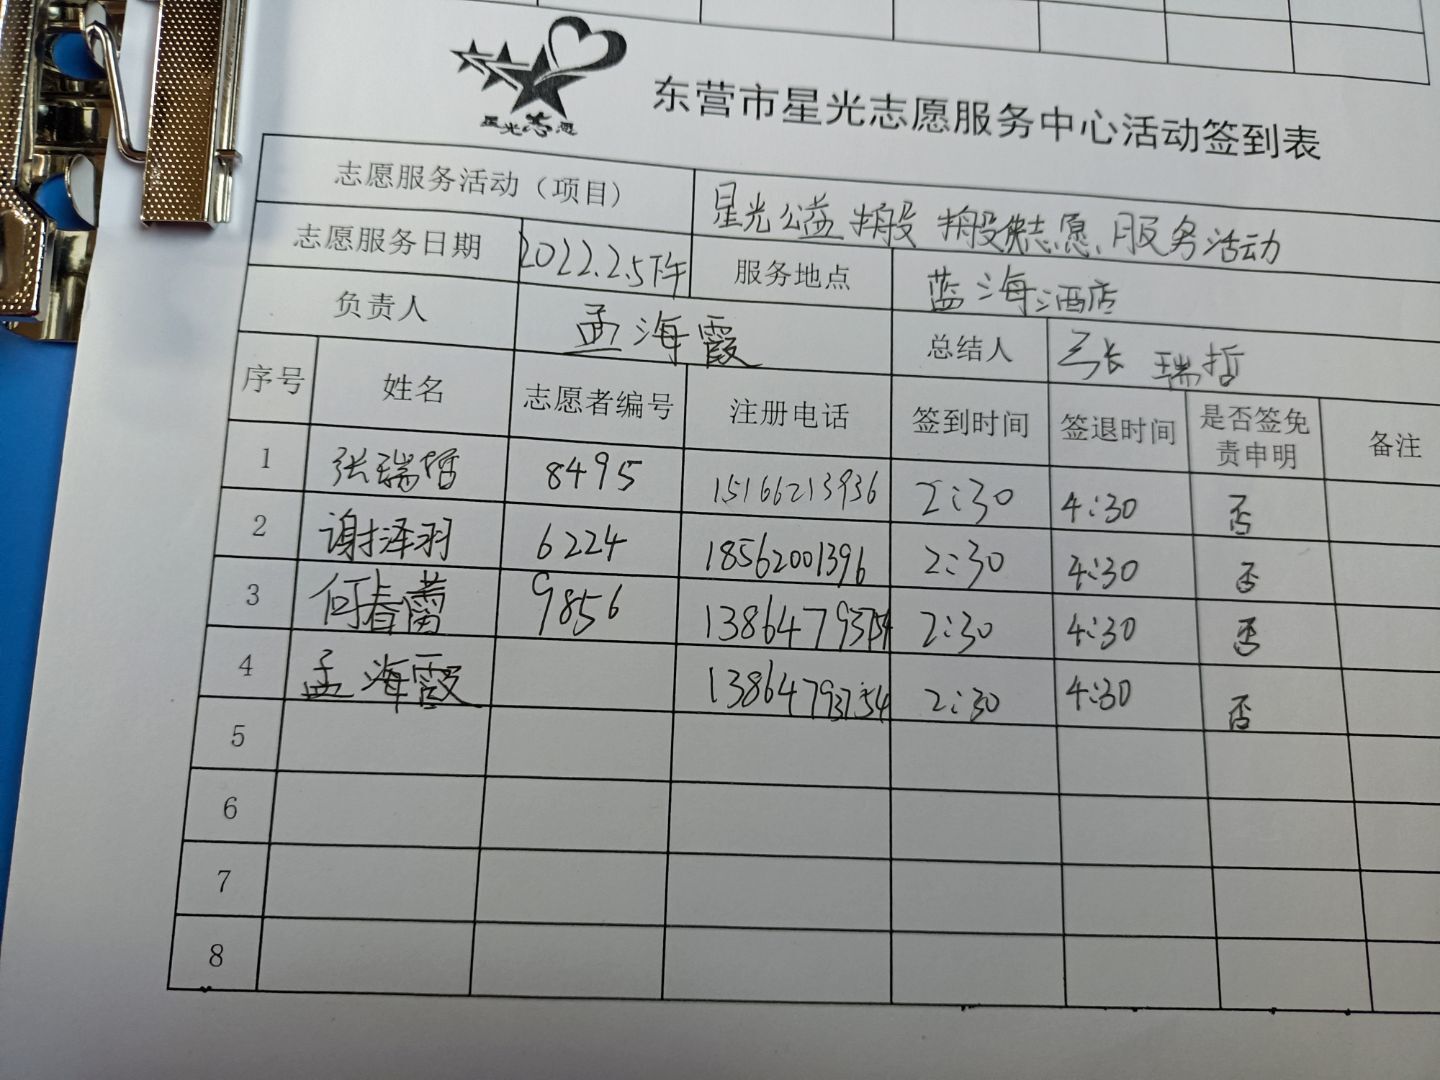 星光志愿
东营市星光志愿服务中心活动签到表
志愿服务活动（项目） 星光公益 志愿、服务活动
志愿服务日期 2022.2.5下午 服务地点 蓝海酒店
负责人 孟海霞 总结人 张瑞哲
序号 姓名 志愿者编号 注册电话 签到时间 签退时间 是否签免责申明 备注
1 张瑞哲 8495 15166213936 2:30 4:30 否
2 谢泽羽 6224 18562001396 2:30 4:30 否
3 何春蕾 9856 13864793754 2:30 4:30 否
4 孟海霞 13864793754 2:30 4:30 否
5
6
7
8